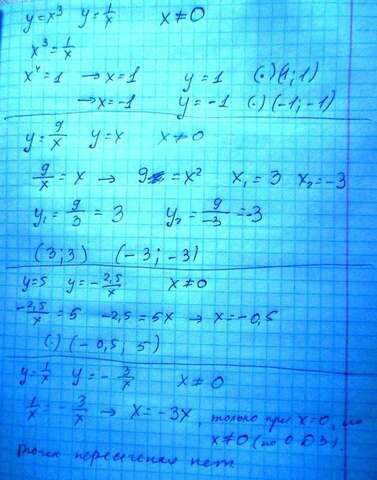 y=x³ y=1/x x≠0
x³=1/x
x⁴=1 → x=1 y=1 (·)(1;1)
→ x=-1 y=-1 (·)(-1;-1)
y=9/x y=x x≠0
9/x=x → 9=x² x₁=3 x₂=-3
y₁=9/3=3 y₂=9/-3=-3
(3;3) (-3;-3)
y=5 y=-2,5/x x≠0
-2,5/x=5 -2,5=5x → x=-0,5
(·)(-0,5; 5)
y=1/x y=-3/x x≠0
1/x=-3/x → x=-3x, только при x=0, но
x≠0 (по ОДЗ).
точек пересечения нет